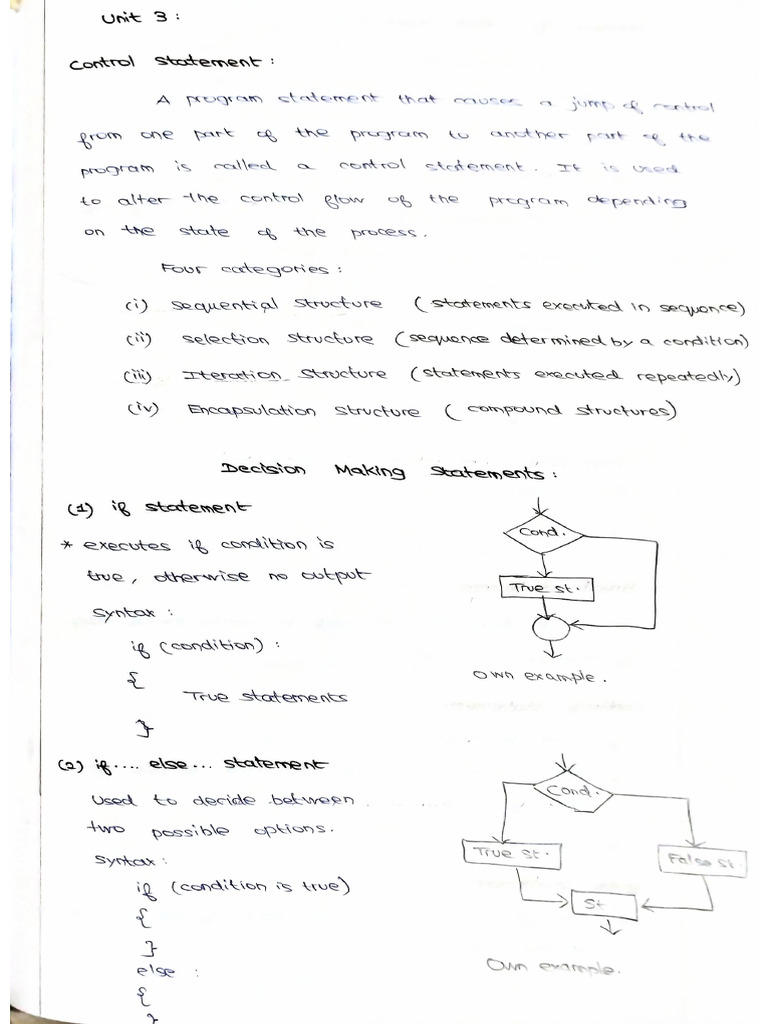 Unit 3 :
Control Statement :
A program statement that causes a jump of control
from one part of the program to another part of the
program is called a control statement. It is used
to alter the control flow of the program depending
on the state of the process.
Four categories :
(i) Sequential structure (statements executed in sequence)
(ii) Selection structure (sequence determined by a condition)
(iii) Iteration structure (statements executed repeatedly)
(iv) Encapsulation structure (compound structures)
Decision Making Statements :
(1) if statement
* executes if condition is
true, otherwise no output
Syntax :
if (condition) :
{
True statements
}
Cond.
True st.
Own example.
(2) if .... else ... statement
Used to decide between
two possible options.
Syntax :
if (condition is true)
{
}
else :
{
}
Cond.
True st.
False st.
St
Own example.